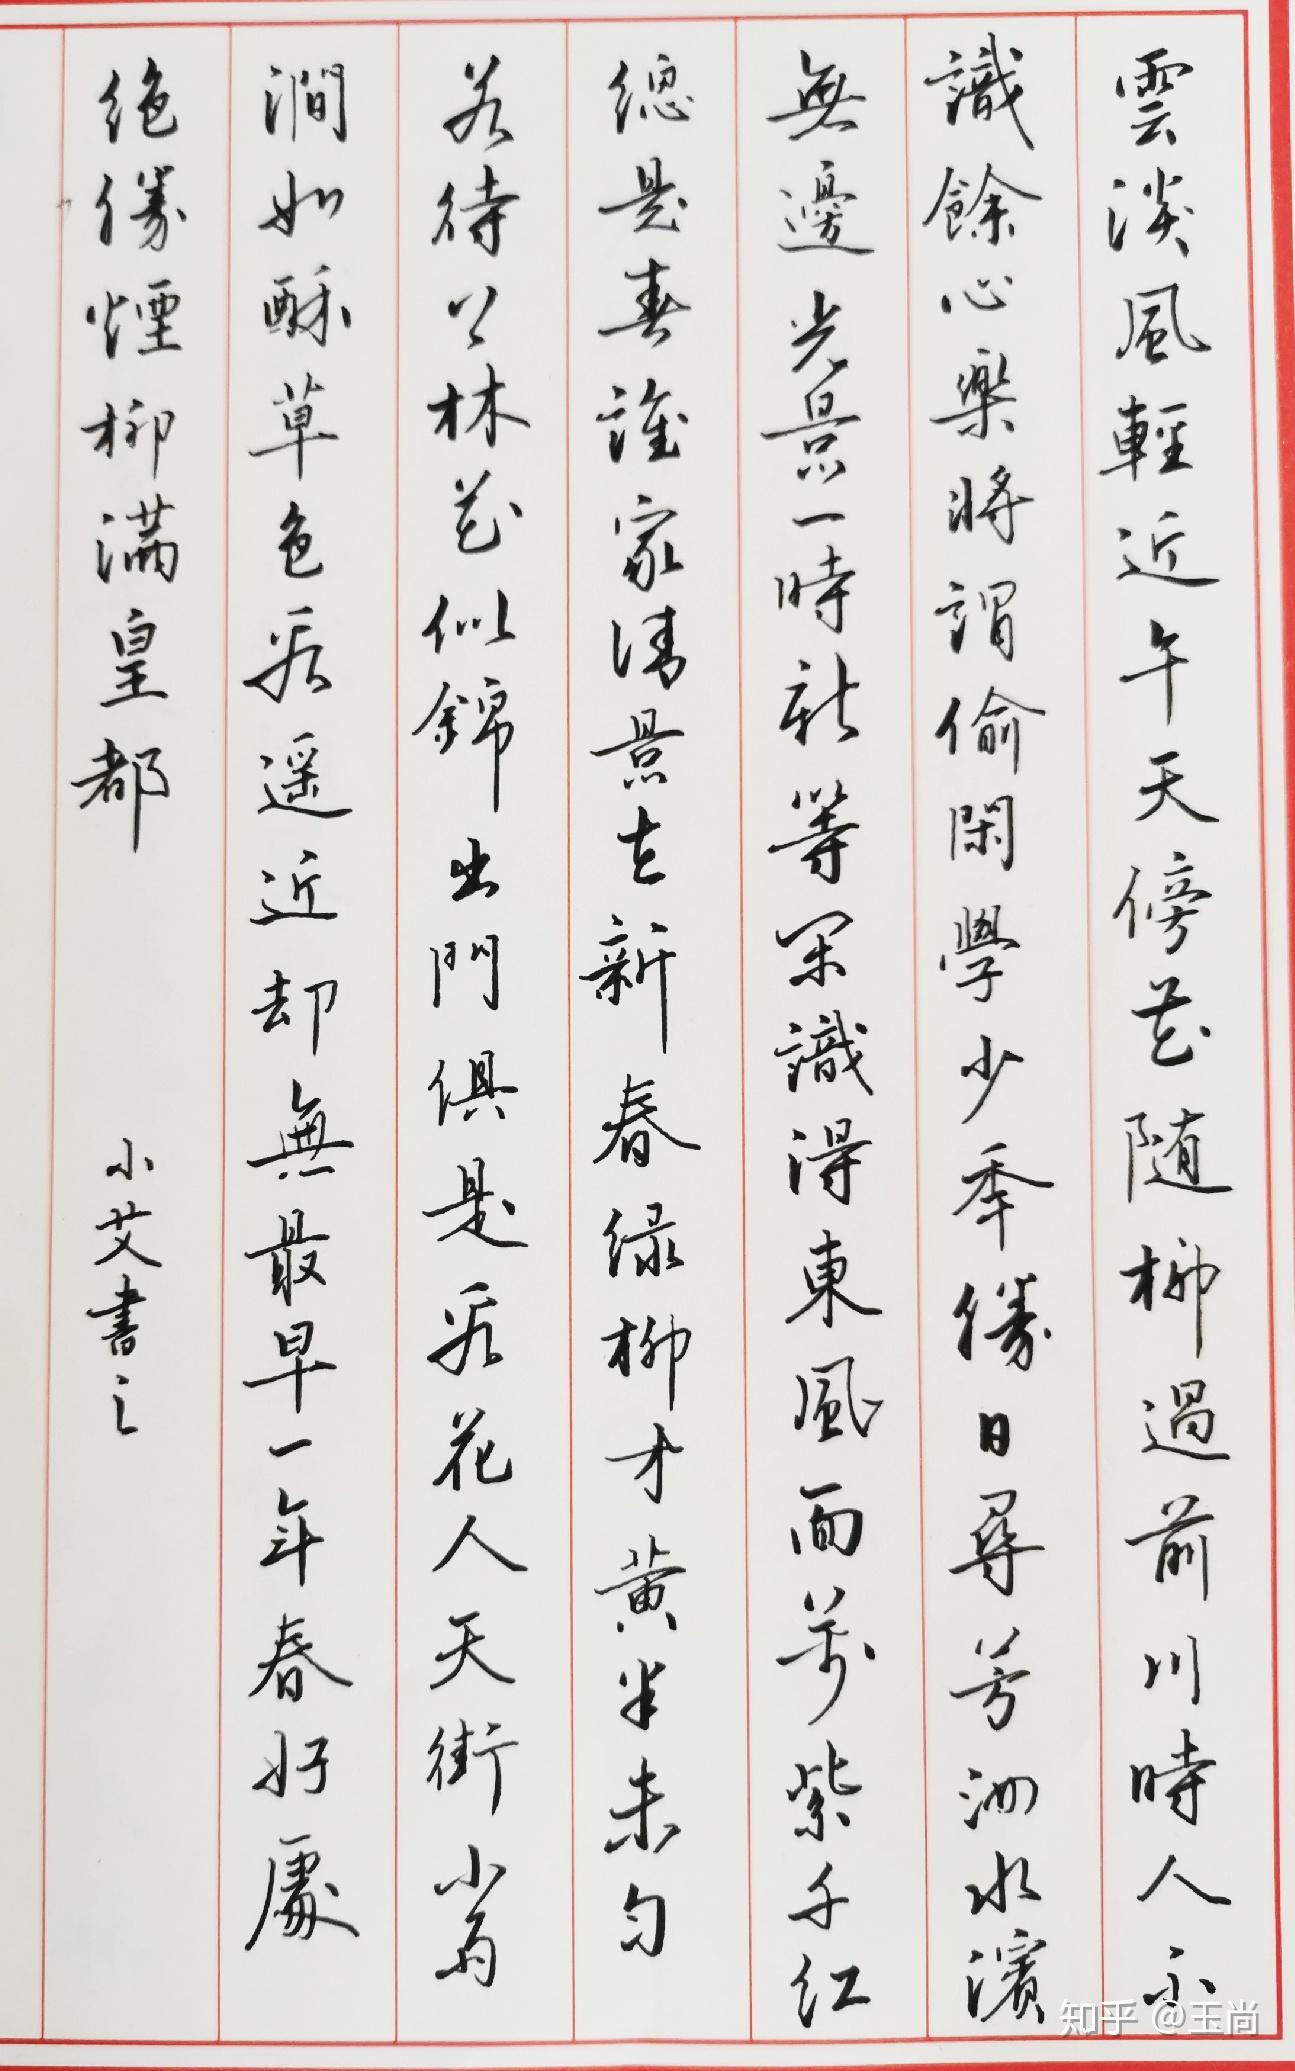 雲淡風輕近午天傍花随柳過前川時人不
識餘心樂將謂偷閑學少年勝日尋芳泗水濱
無邊光景一時新等閑識得東風面萬紫千红
總是春誰家清景在新春绿柳才黄半未匀
若待上林花似錦出門俱是看花人天街小雨
澗如酥草色看遥近却無最早一年春好處
绝勝煙柳满皇都
小艾書之
知乎 @玉尚